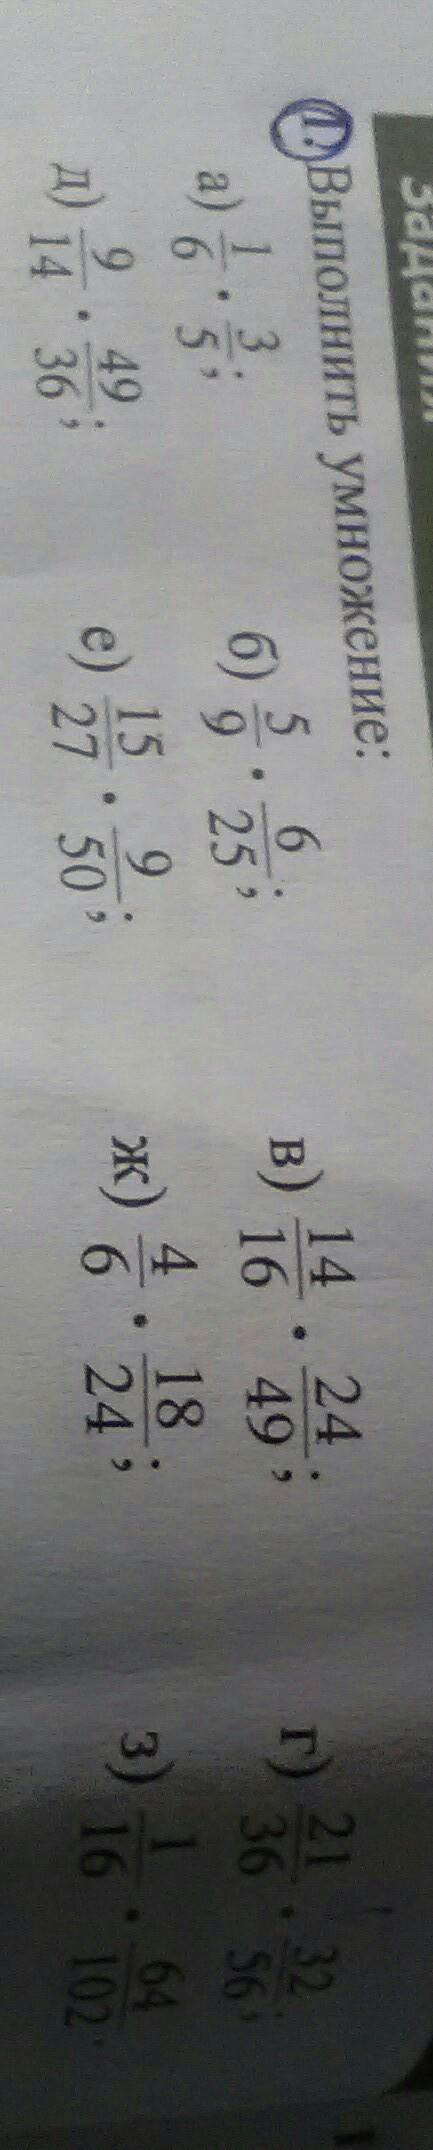 задания
1. Выполнить умножение:
а) 1/6 · 3/5; б) 5/9 · 6/25; в) 14/16 · 24/49; г) 21/36 · 32/56;
д) 9/14 · 49/36; е) 15/27 · 9/50; ж) 4/6 · 18/24; з) 1/16 · 64/102.